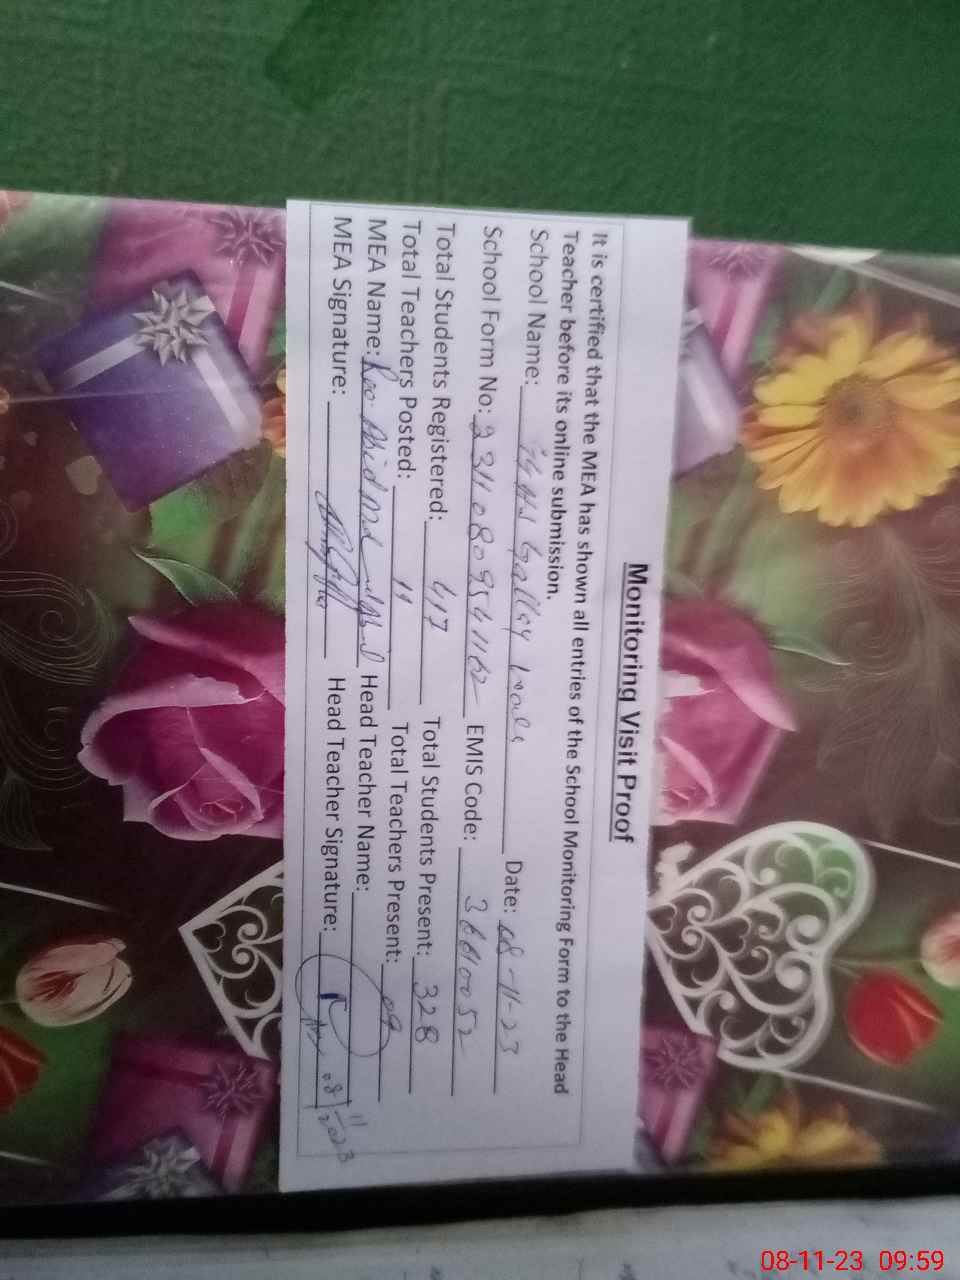 Monitoring Visit Proof
It is certified that the MEA has shown all entries of the School Monitoring Form to the Head
Teacher before its online submission.
School Name: Date: 08-11-23
School Form No: EMIS Code:
Total Students Registered: 417 Total Students Present: 328
Total Teachers Posted: 11 Total Teachers Present: 09
MEA Name: Head Teacher Name:
MEA Signature: Head Teacher Signature: 08/11/2023
08-11-23 09:59